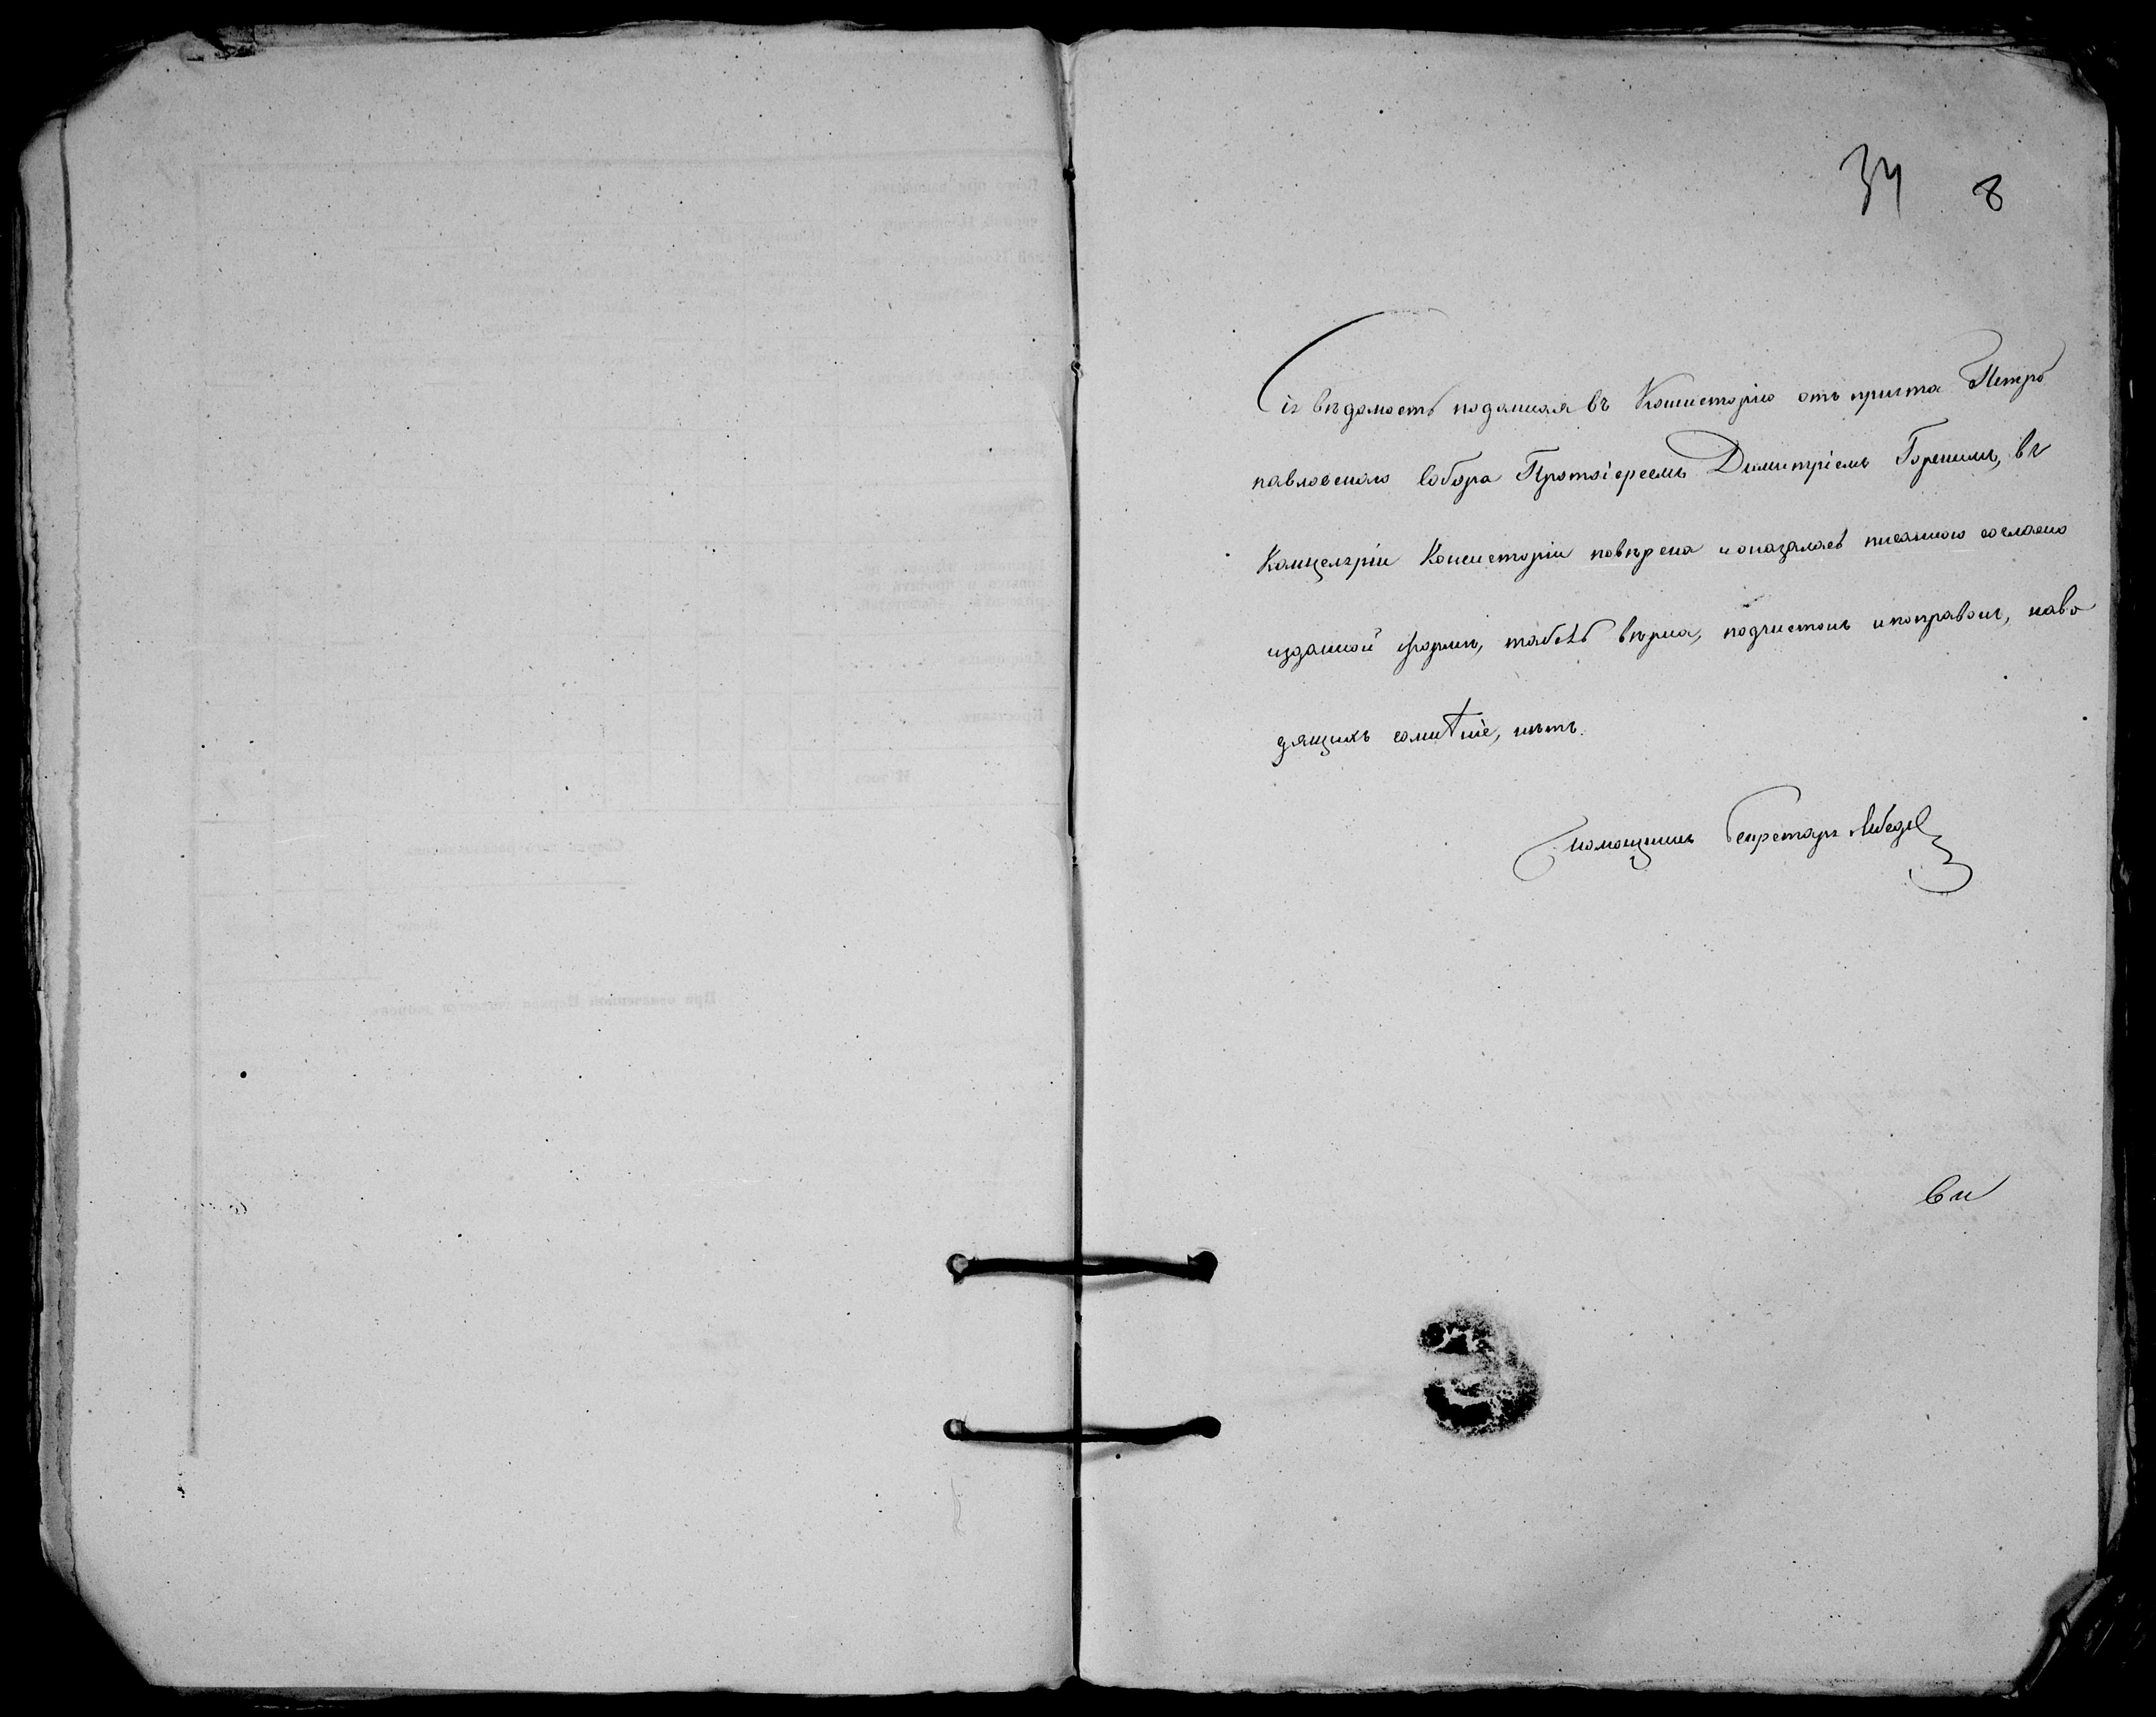 34 8
Сiя вѣдомость поданная въ Консисторiю отъ причта Петро
павловскаго собора Протоiереемъ Димитрiемъ, въ
Канцелярiи Консисторiи повѣрена и оказалась писанною согласно
изданной формѣ, табель вѣрна, подчистокъ и поправокъ, наво
дящихъ сомнѣнiе, нѣтъ.
Помощникъ Секретаря Лебедев